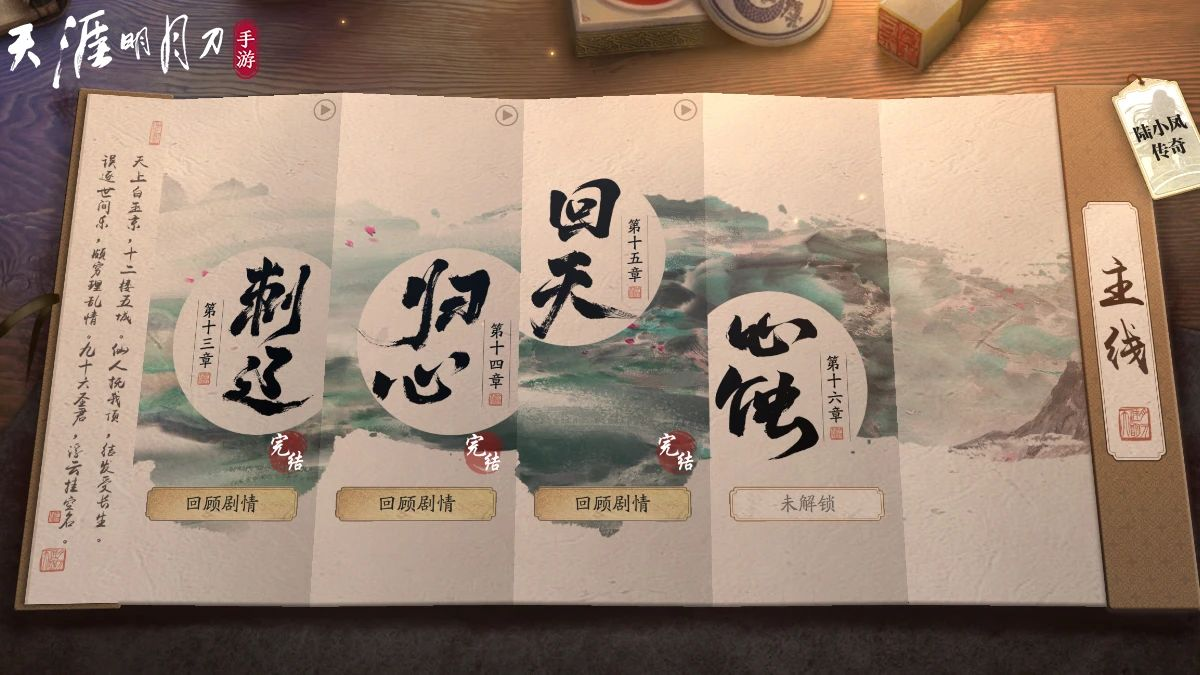 天涯明月刀
手游
天上白玉京，十二楼五城。仙人抚我顶，结发受长生。
误逐世间乐，颇穷理乱情。九十六圣君，浮云挂空名。
刺辽
第十三章
完结
回顾剧情
归心
第十四章
完结
回顾剧情
回天
第十五章
完结
回顾剧情
心蚀
第十六章
未解锁
陆小凤
传奇
主线